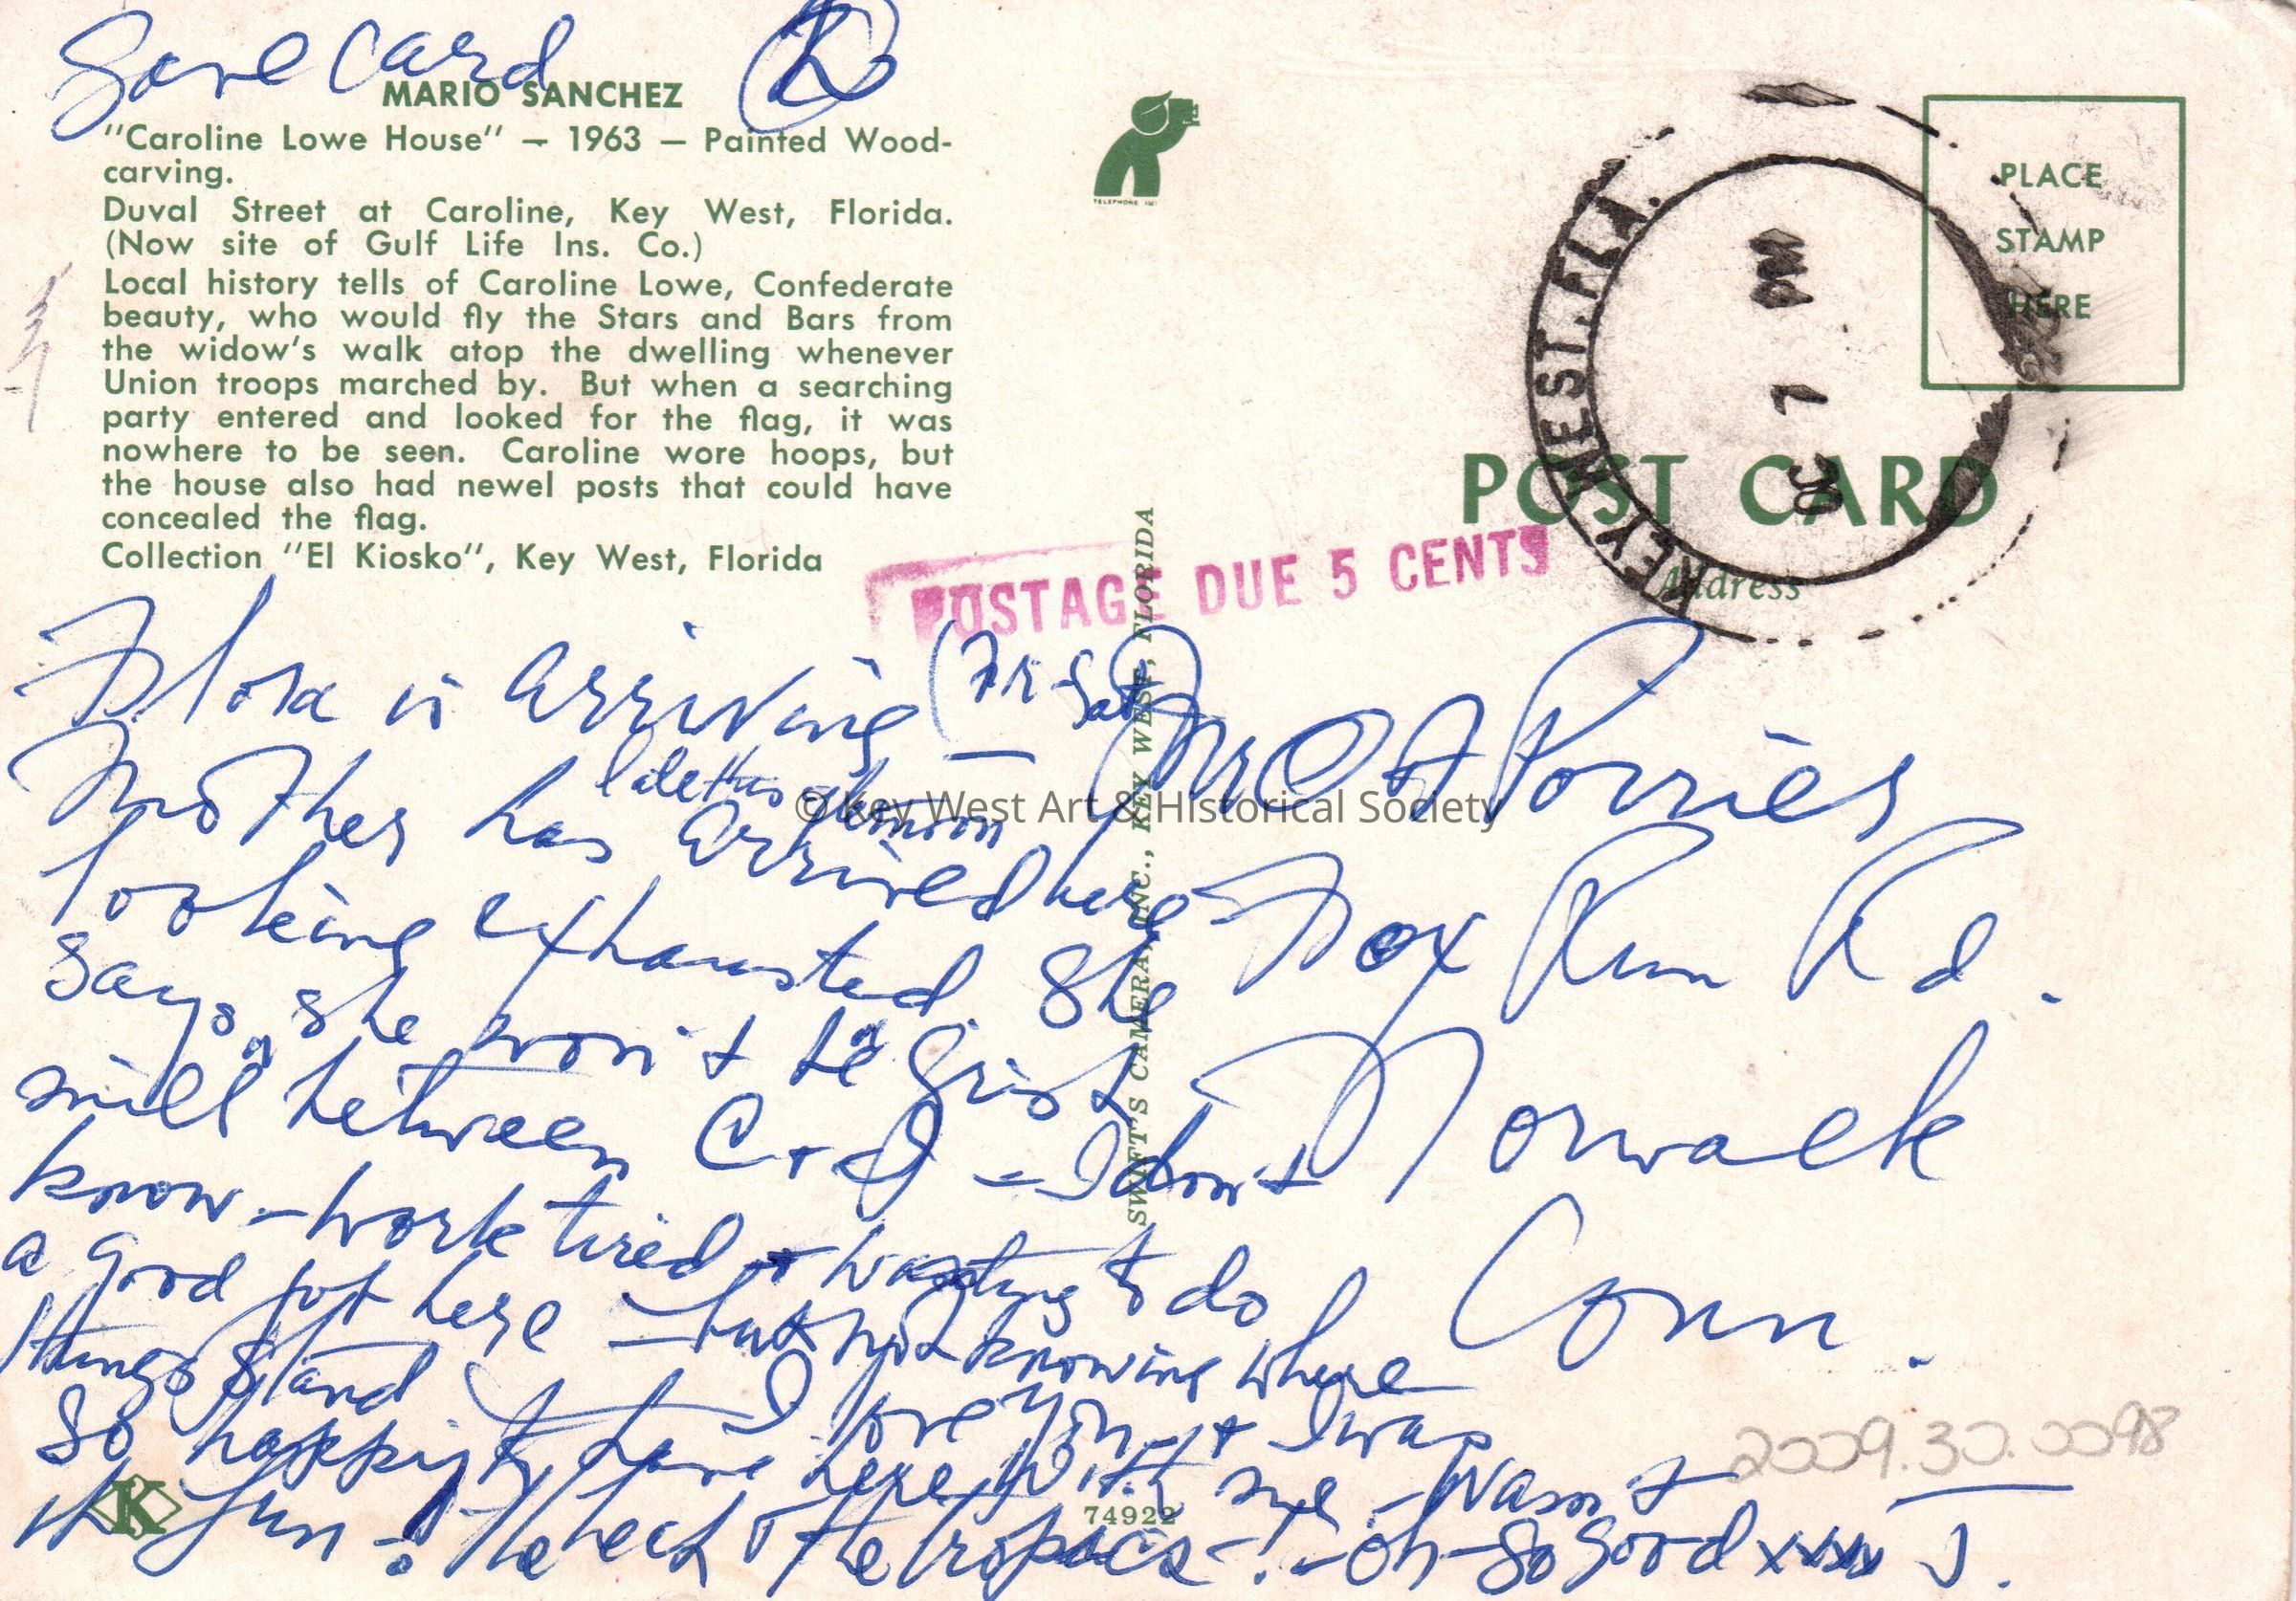 Save Card
MARIO SANCHEZ
"Caroline Lowe House" — 1963 — Painted Wood-
carving.
Duval Street at Caroline, Key West, Florida.
(Now site of Gulf Life Ins. Co.)
Local history tells of Caroline Lowe, Confederate
beauty, who would fly the Stars and Bars from
the widow's walk atop the dwelling whenever
Union troops marched by. But when a searching
party entered and looked for the flag, it was
nowhere to be seen. Caroline wore hoops, but
the house also had newel posts that could have
concealed the flag.
Collection "El Kiosko", Key West, Florida
Flora is arriving
Mother has arrived here
late this afternoon
looking exhausted. She
says she won't be grist
mill between C + J – I don't
know – work tired + wanting to do
a good job here – but not knowing where
things stand I love you – + I was
So happy to have here with me – Wasn't
it fun –! The heck the tropics –! – Oh – So good xxxx J.
SWIFT'S CAMERA, INC., KEY WEST, FLORIDA
K
74922
PLACE
STAMP
HERE
KEY WEST, FLA.
PM
7
POST CARD
Address
POSTAGE DUE 5 CENTS
Fox Run Rd.
Norwalk
Conn.
2009.30.0098
© Key West Art & Historical Society